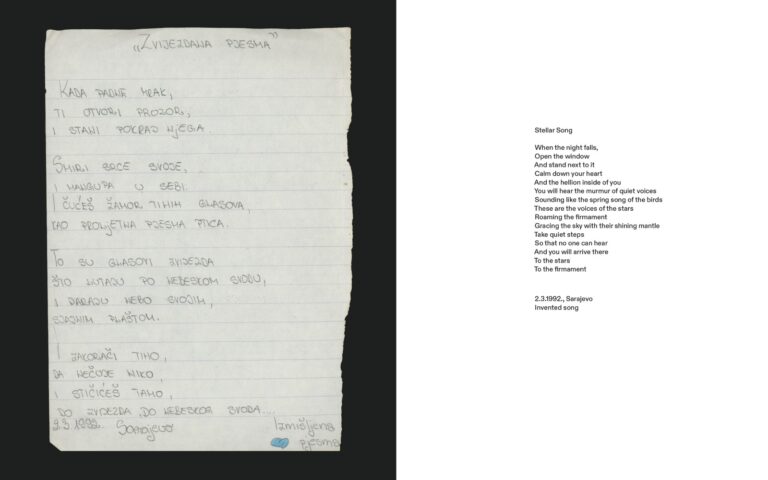 „ZVIJEZDANA PJESMA”
KADA PADNE MRAK,
TI OTVORI PROZOR,
I STANI POKRAJ NJEGA.
SMIRI SRCE SVOJE,
I MANGUPA U SEBI.
I ČUĆEŠ ŽAMOR TIHIH GLASOVA,
KAO PROLJETNA PJESMA PTICA.
TO SU GLASOVI ZVIJEZDA
ŠTO LUTAJU PO NEBESKOM SVODU,
I DARAJU NEBO SVOJIM,
SJAJNIM PLAŠTOM.
I ZAKORAČI TIHO,
DA NEČUJE NIKO,
I STIĆIĆEŠ TAMO,
DO ZVJEZDA, DO NEBESKOG SVODA....
2.3 1992. Sarajevo
Izmišljena
pjesma
Stellar Song
When the night falls,
Open the window
And stand next to it
Calm down your heart
And the hellion inside of you
You will hear the murmur of quiet voices
Sounding like the spring song of the birds
These are the voices of the stars
Roaming the firmament
Gracing the sky with their shining mantle
Take quiet steps
So that no one can hear
And you will arrive there
To the stars
To the firmament
2.3.1992., Sarajevo
Invented song